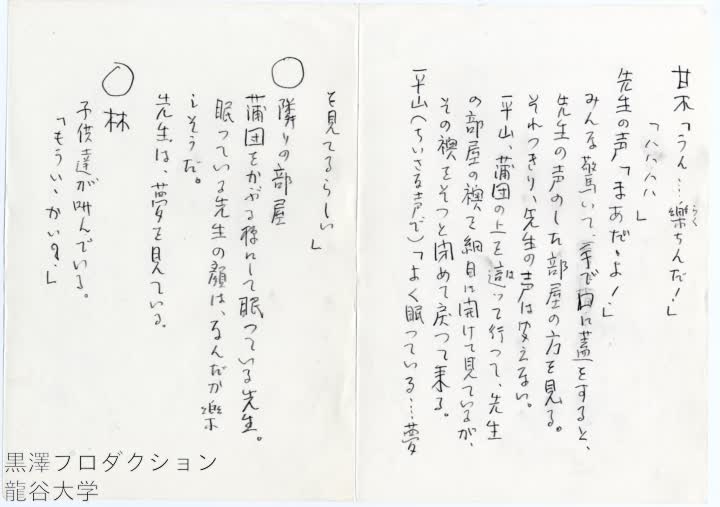 甘木「うん…樂ちんだ！」
らく
「ハハハハ」
先生の声「まあだゞよ！」
みんな驚いて、手で口に蓋をすると、
先生の声のした部屋の方を見る。
それつきり、先生の声は
平山、蒲団の上を這って行つて、先生
は
の部屋の襖を細目に開けて見ているが、
その襖をそっと閉めて戻つて来る。
平山（ちいさな声で）「よく眠っている…夢
を見てるらしい」
○ 隣りの部屋
蒲団をかぶる様にして眠つている先生。
眠っている先生の顔は、なんだか樂
しそうだ。
先生は、夢を見ている。
○ 林
子供達が叫んでいる。
「もういゝかい？」
黒澤プロダクション
龍谷大学